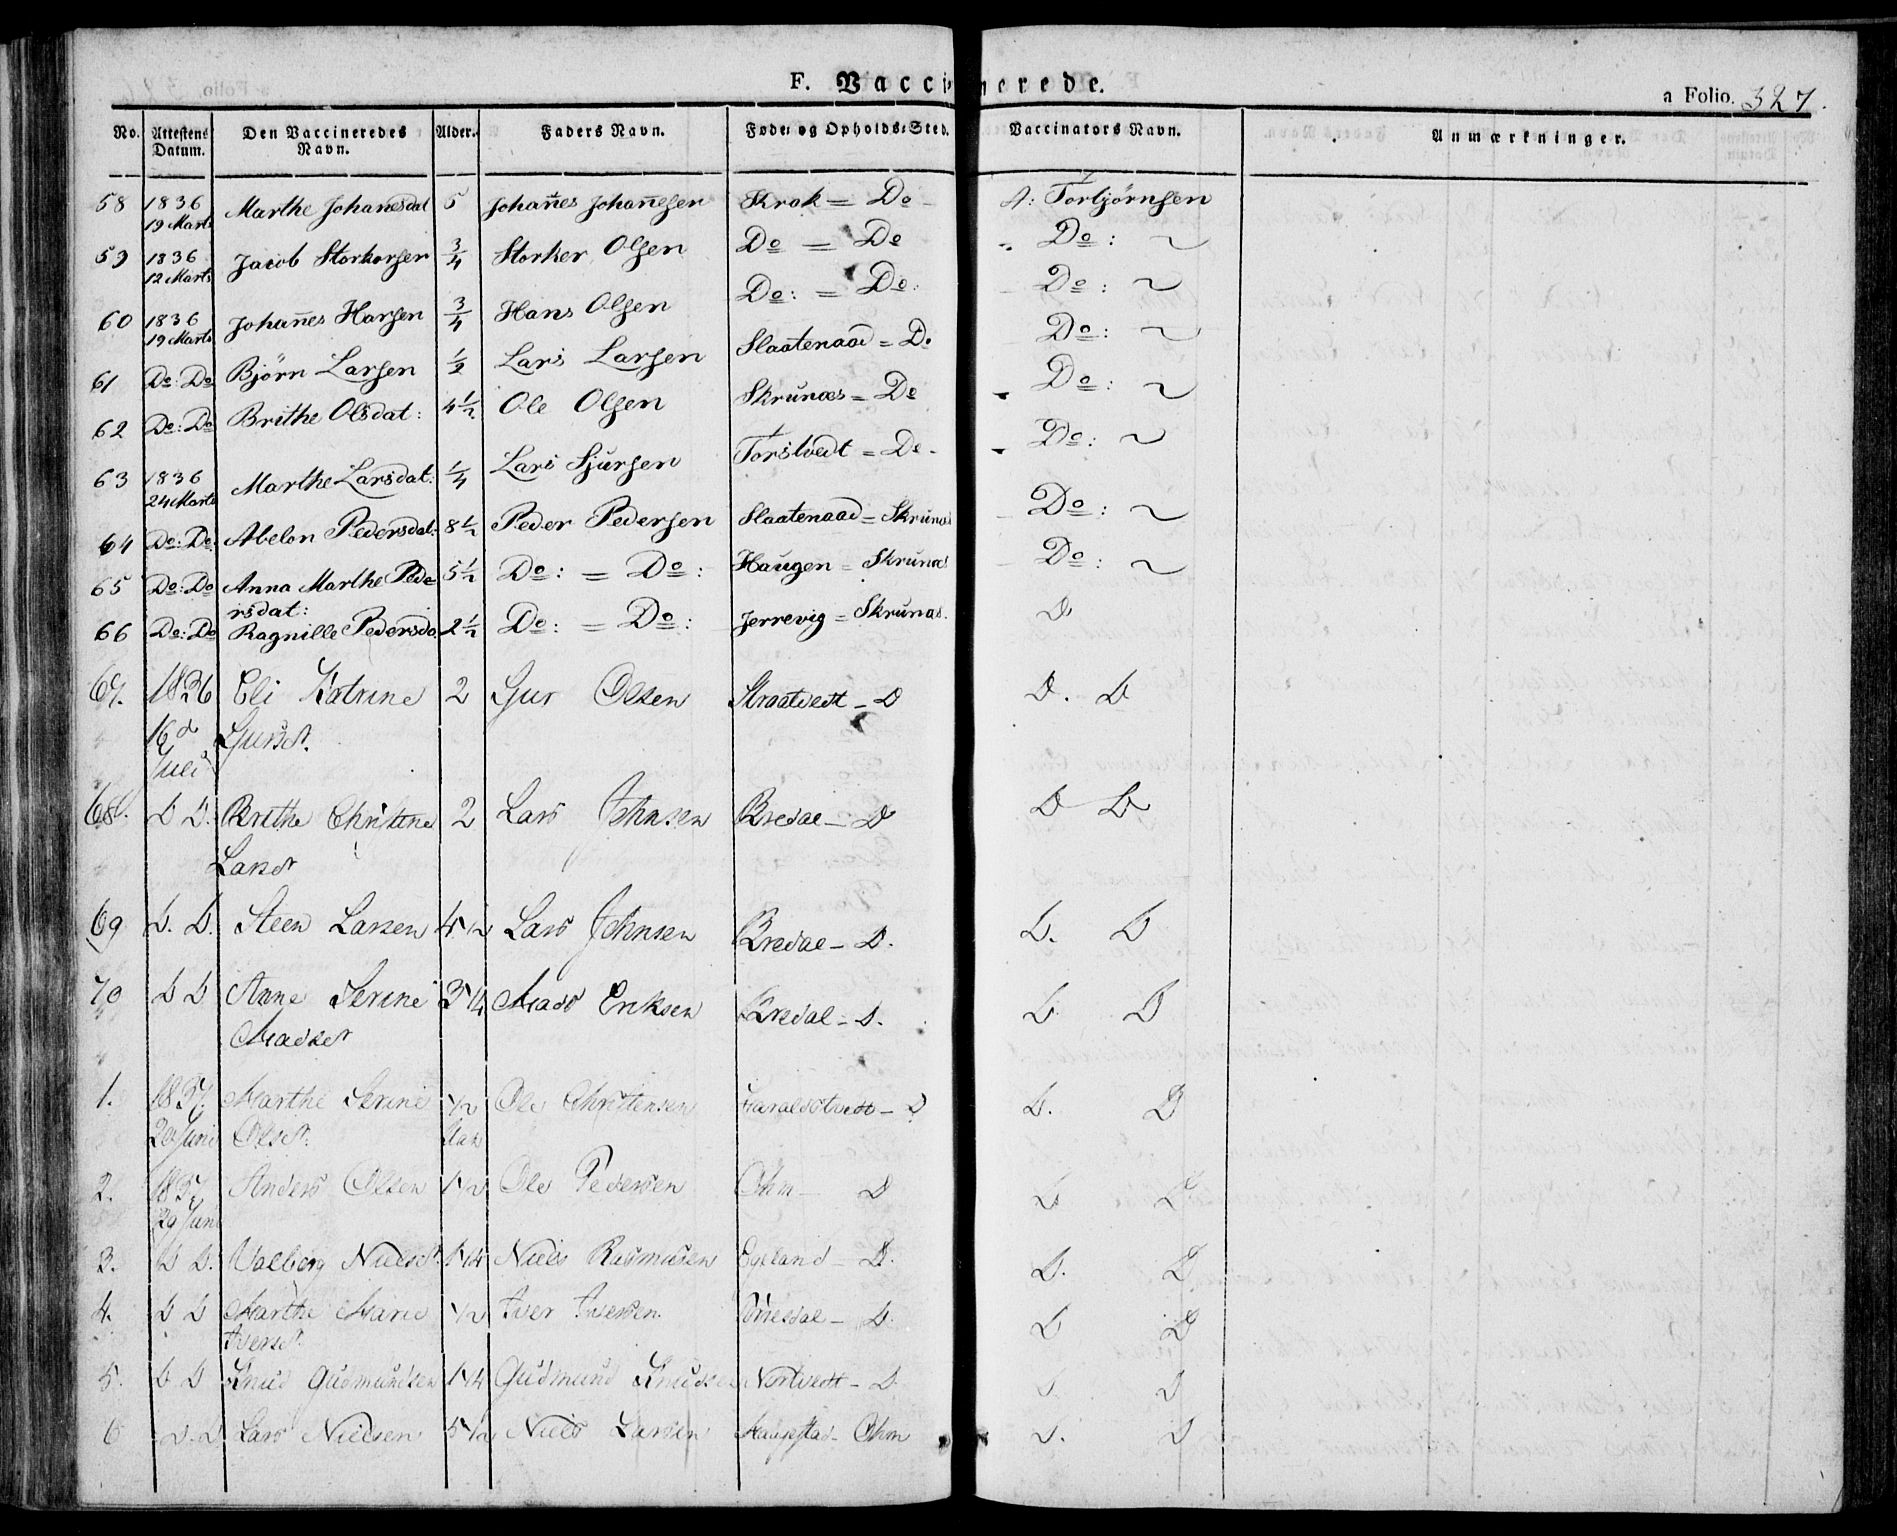 F. Vaccinerede. a Folio. 327.
No. Attestens Datum. Den Vaccineredes Navn. Alder. Faders Navn. Føde- og Opholds-Sted. Vaccinators Navn. Anmærkninger.
58 1836 19 Marts Marthe Johanesdat 5 Johañes Johañesen Skrok = Do A: Torbjörnsen
59 1836 12 Marts Jacob Storkersen 3/4 Storker Olsen Do = Do Do: ~
60 1836 19 Marts Johañes Hansen 3/4 Hans Olsen Do: = Do: Do: ~
61 Do: Do Bjørn Larsen 1/2 Lars Larsen Slaatenaad = Do Do: ~
62 Do: Do Brithe Olsdat: 4 1/2 Ole Olsen Skrunæs = Do Do: ~
63 1836 24 Marts Marthe Larsdat: 1/4 Lars Sjursen Torstvedt = Do Do: ~
64 Do: Do Abelon Pedersdat: 8 1/2 Peder Pedersen Slaatenaad = Skrunæs Do: ~
65 Do: Do Anna Marthe Pede 5 1/2 Do: = Do: Haugen = Skrunæs Do: ~
rsdat:
66 Do: Do Ragnille Pedersda 2 1/2 Do: = Do: Jerrevig = Skrunæs. D
67. 1836 Eli Katrine 2 Sjur Olsen Straatvedt - D D. D
16d Juli Sjursdt.
68. D D. Brithe Christine 2 Lars Johnsen Bredal - D D D
Larsdt
69 D. D. Steen Larsen 4 1/2 Lars Johnsen Bredal - D. D. D
70 D D Anne Serine 3 1/4 Mads Eriksen Bredal - D. D. D
Madsdt
1. 1837. Marthe Serine 1/2 Ole Christensen Haraldstvedt - D D. D
20 Juni Olsdt. Aar
2. 1837 Anders Olsen 1 1/2 Ole Pedersen Ohm - D D D
29 Juni
3. D D. Valborg Nielsdt. 1 1/4 Niels Rasmusen Egeland - D. D. D
4. D D Marthe Marie 1/2 Iver Iversen. D. D D
Iversdt.
5. D D Knud Gudmundsen 1 1/4 Gudmund Knudsen Nortvedt - D. D. D
6 D. D Lars Nielsen 5 1/2 Niels Larsen Ohm D. D